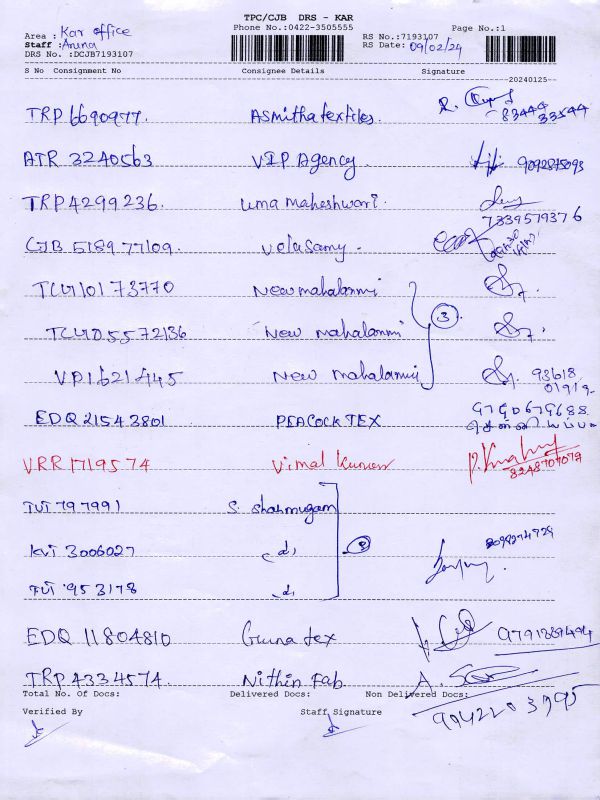 TPC/CJB DRS - KAR
Phone No.:0422-3505555
Page No.:1
Area : Kar office
Staff : Aruna
DRS No. :DCJB7193107
RS No.:7193107
RS Date: 09/02/24
S No Consignment No Consignee Details Signature
20240125
TRP 6690977. Asmitha textiles. 83444 33544
ATR 3240563 VIP Agency. 9092875093
TRP 4299236. Uma maheshwari. 7339579376
CJB 518977109. Velusamy.
TCM10173770 New mahalaxmi
3
TCM055 72136 New mahalaxmi
VPI621445 New mahalaxmi 93618
EDQ 21543801 PEACOCK TEX 9790679688
VRR1719574 Vimal Kumar 8248707078
TUT 797991 S. Shanmugam
KVT 3006027
TUT 953178
EDQ 11804810 Guna tex 9791389494
TRP 4334574. Nithin Fab
Total No. Of Docs: Delivered Docs: Non Delivered Docs:
Verified By Staff Signature